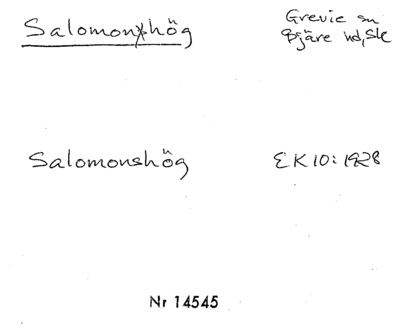 Salomonshög
Grevie sn
Bjäre hd, Sk
Salomonshög
EK 10:1928
Nr 14545